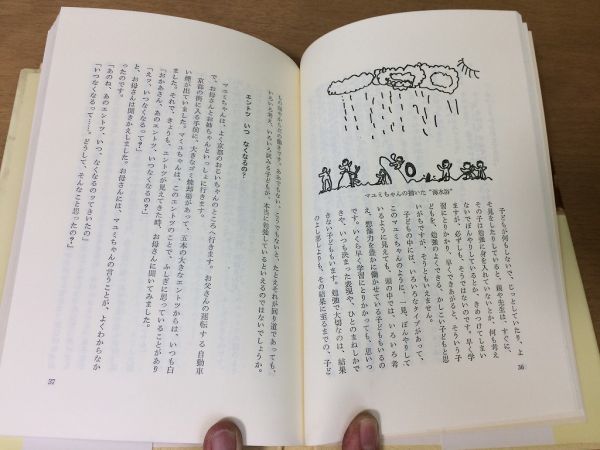 マユミちゃんの描いた“海水浴”
子どもが何もしないで、じっとしていたり、よ
そ見をしたりしていると、親や先生は、すぐに、
その子は勉強に身を入れていないとか、何も考え
ないでぼんやりしているとか、きめつけてしまい
ますが、必ずしも、そうではないのです。早く学
習にとりかかり、早くできあがると、そういう子
どもを、勉強のよくできる、かしこい子どもと思
いがちですが、そうともいえません。
子どもの中には、いろいろなタイプがあって、
このマユミちゃんのように、一見、ぼんやりして
いるように見えても、頭の中では、いろいろ考
え、想像力を豊かに働かせている子どももいるの
です。いくら早く学習にとりかかっても、思いつ
きや、いつも決まった表現や、ひとのまねしかで
きない子どももいます。勉強で大切なのは、結果
のよし悪しよりも、その結果に至るまでの、子ど
36
もの頭やからだの働きです。ああでもない、こうでもないと、たとえそれが回り道であっても、
いろいろ考え、いろいろ試みる子どもが、本当に勉強しているといえるのではないでしょうか。
エントツ いつ なくなるの?
マユミちゃんは、よく京都のおじいちゃんのところへ行きます。お父さんの運転する自動車
で、お母さんとお姉ちゃんといっしょに行きます。
京都の街に入る手前に、大きなゴミ焼却場があって、五本の大きなエントツからは、いつも白
い煙が出ていました。マユミちゃんは、このエントツのことで、ふしぎに思っていることがあり
ました。それで、きょうも、エントツが見えてきた時、お母さんに聞いてみました。
「おかあさん、あのエントツ、いつなくなるの?」
「えッ、いつなくなるって?」
と、お母さんは聞きかえしました。お母さんには、マユミちゃんの言うことが、よくわからなか
ったのです。
「あのね、あのエントツ、いつ、なくなるのってきいたの」
「いつなくなるって……。どうして、そんなこと思ったの?」
37